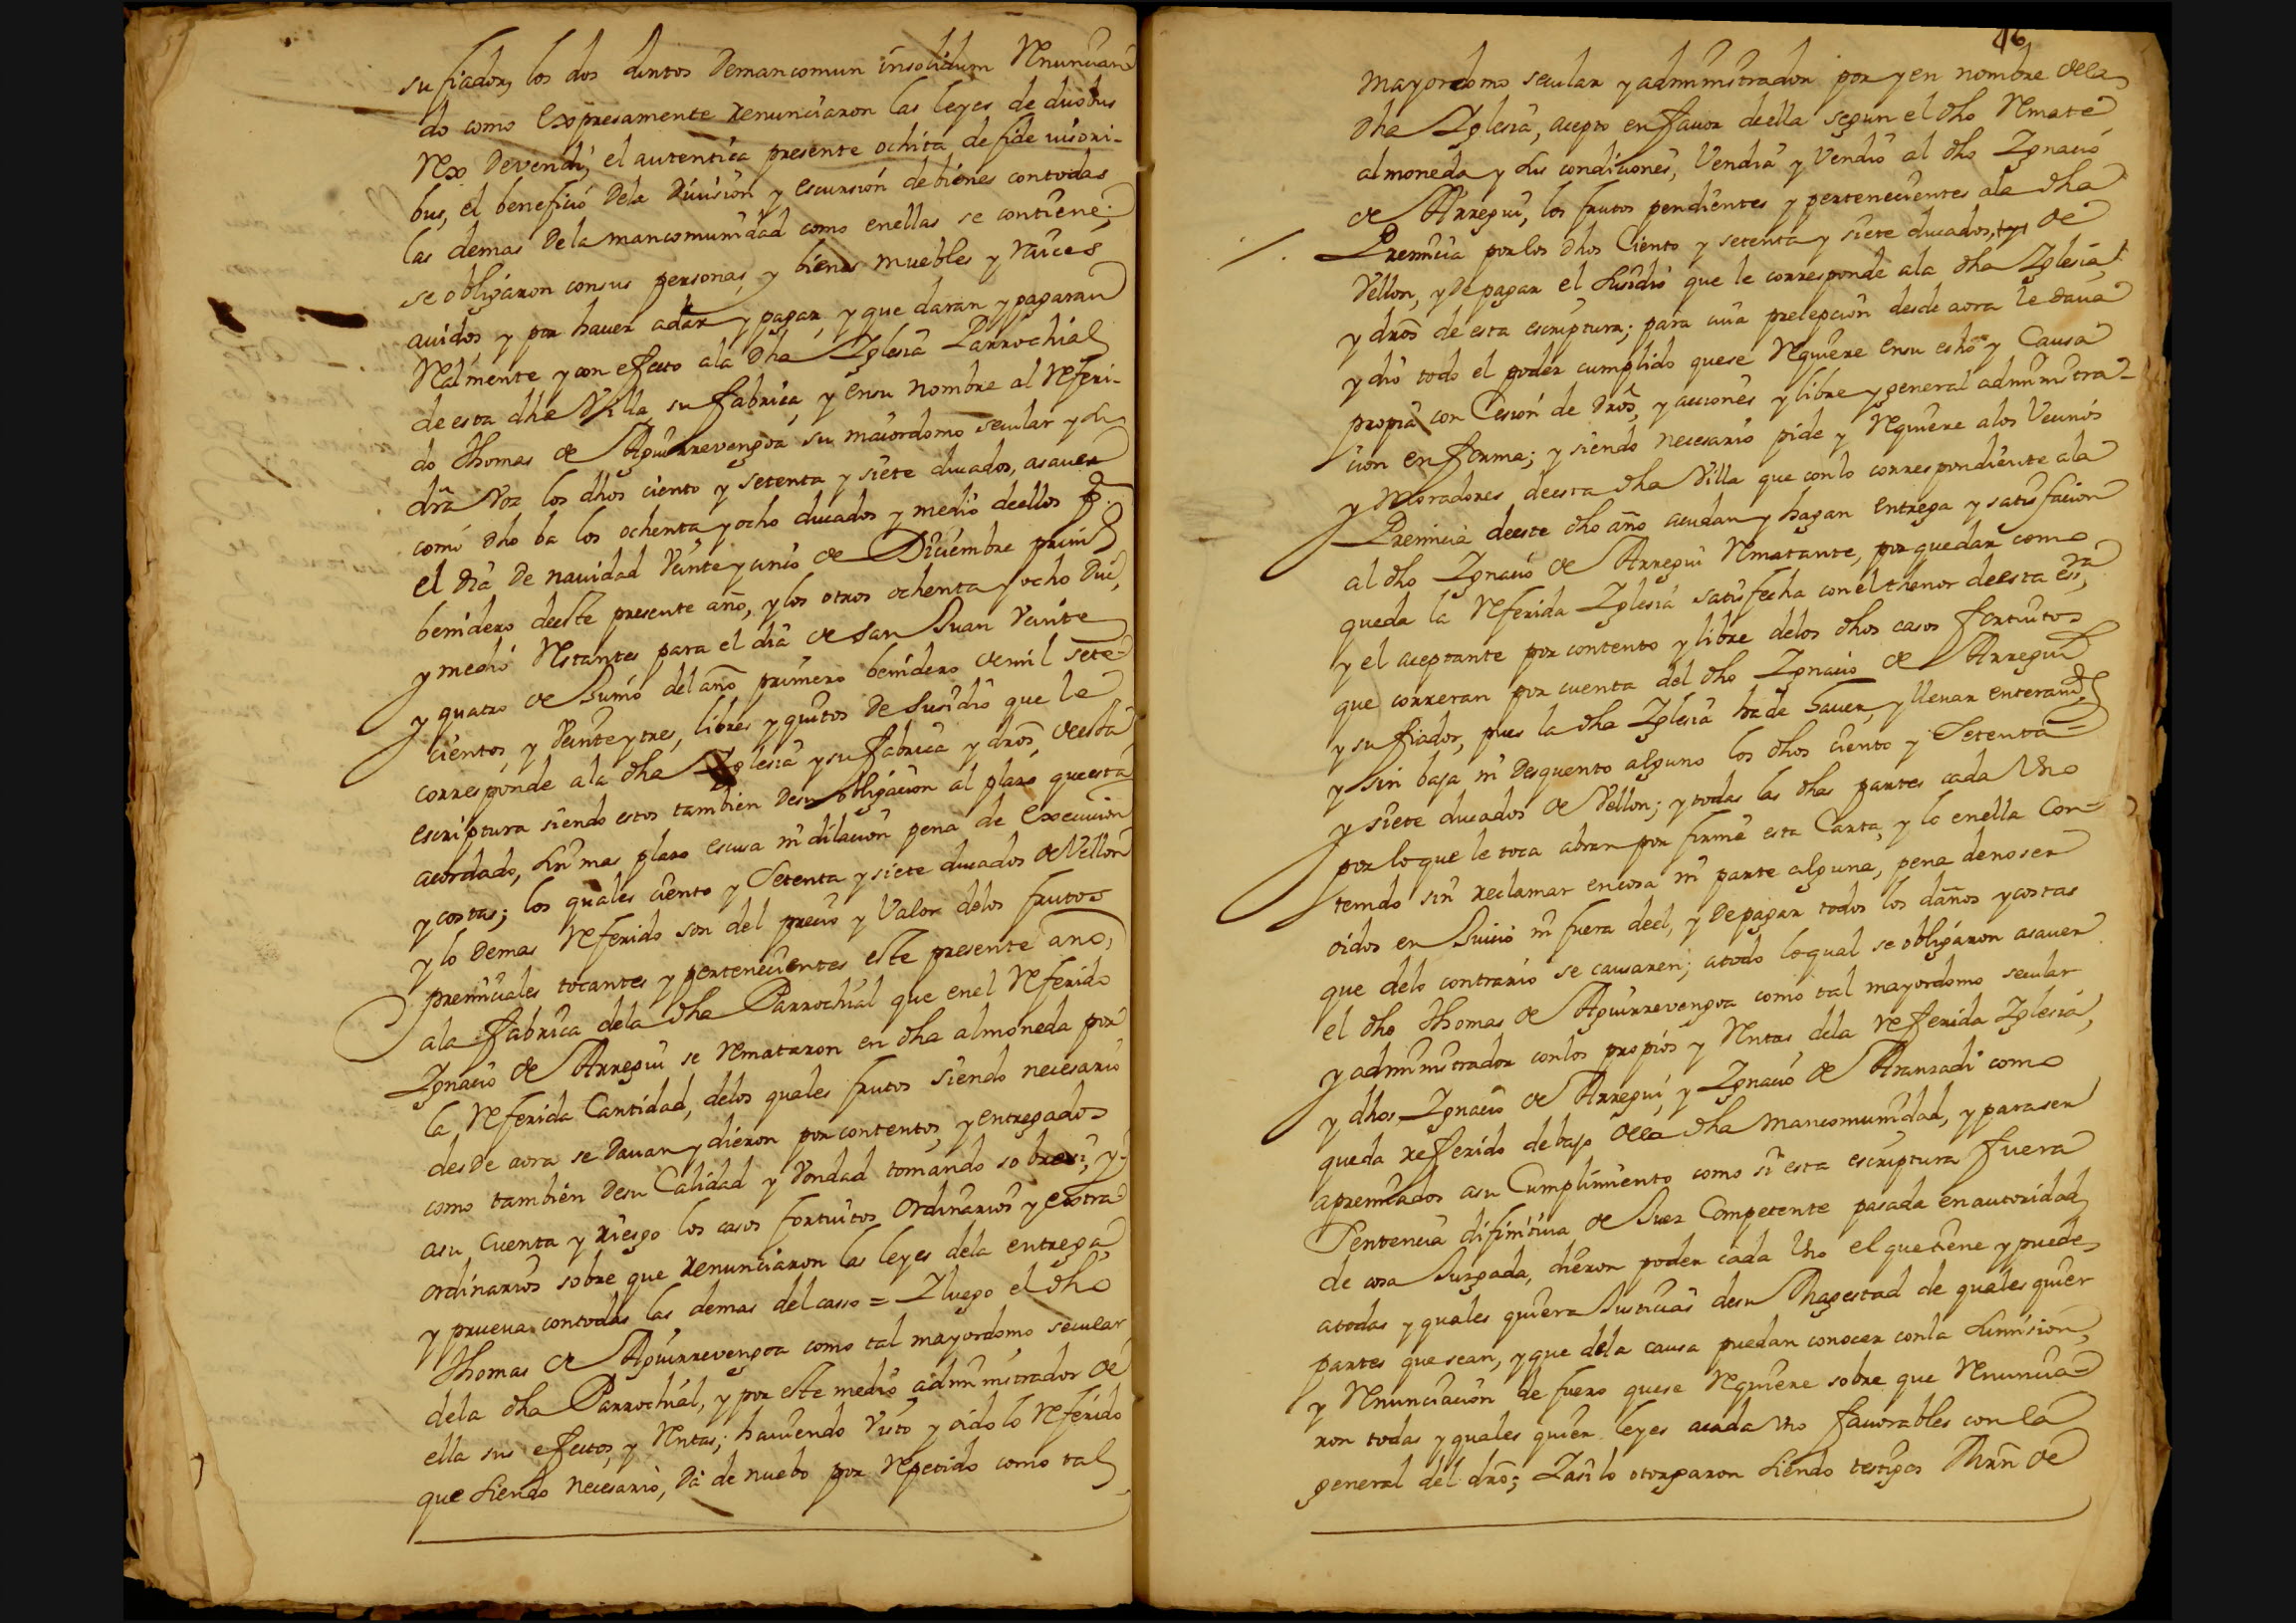 su fiador, los dos Juntos Demancomun insolidum Renuncian
do como Expresamente Renunciaron las leyes de duobus
Rex Devendi, el autentica presente ochita de fide iusori-
bus, el beneficio Dela Diuision y escursion debienes contodas
las demas Dela mancomunidad como enellas se contiene;
se obligaron consus personas, y bienes muebles y raices
auidos, y por hauer adar y pagar, y que daran y pagaran
Realmente y con efecto ala Dha Iglesia Parrochial
de esta dha Villa, su fabrica, y ensu nombre al Referi-
do Thomas de Aguirrevengoa su maiordomo secular y su
dra Voz, los dhos ciento y setenta y siete ducados, asauer
como dho ba los ochenta y ocho ducados y medio deellos pa.
el dia de nauidad Veinte y cinco de Diciembre primo
benidero deeste presente año, y los otros ochenta y ocho Duc,
y medio Restantes para el dia de san Juan Veinte
y quatro de Junio del año primero benidero demil sete-
cientos, y Veinte y tres, libres y quitos de susidio que le
corresponde ala dha Iglesia y su fabrica y dros, deesta
escriptura siendo estos tambien Desu obligacion al plazo queesta
acordado, sin mas plazo escusa ni dilacion pena de Execucion
y costas; los quales ciento y Setenta y siete ducados deVellon
y lo Demas Referido son del precio y Valor delos frutos
premiciales tocantes y pertenecientes este presente año,
ala fabrica dela dha Parrochial que enel Referido
Ignacio de Arregui se Remataron en dha almoneda por
la Referida Cantidad, delos quales frutos siendo necesario
desde aora se Dauan y dieron por contentos, y entregados
como tambien Desu Calidad y Vondad tomando sobresi, y
asu Cuenta y riesgo los casos fortuitos Ordinarios y extra
ordinarios sobre que Renunciaron las leyes dela entrega,
y prueua contodas las demas del casso = I luego el dho
Thomas de Aguirrevengoa como tal mayordomo secular
dela dha Parrochial, y por este medio administrador de
ella sus efectos, y Rentas; hauiendo Visto y oido lo Referido
que siendo necesario, Da de nuebo por Repetido como tal
46
mayordomo secular y administrador por y en nombre dela
dha Iglesia, acepto enfauor deella segun el dho Remate
almoneda y sus condiciones, Vendia y Vendio al dho Ignacio
de Arregui, los frutos pendientes y pertenecientes ala dha
Premicia por los dhos Ciento y setenta y siete ducados, de
Vellon, y de pagar el susidio que le corresponde ala dha Iglesia,
y dros de esta escriptura; para cuia precepcion desde aora le daua
y dio todo el poder cumplido quese Requiere ensu echo y Causa
propia con Cesion de dros, y acciones y libre y general administra-
cion enforma; y siendo necesario pide y Requiere alos Vecinos
y moradores deesta dha Villa que conlo correspondiente ala
Premicia deeste dho año acudan y hagan entrega y satisfacion
al dho Ignacio de Arregui Rematante, por quedar como
queda la Referida Iglesia satisfecha con el thenor deesta essra,
y el aceptante por contento y libre delos dhos casos fortuitos
que correran por cuenta del dho Ignacio de Arregui
y su fiador, pues la dha Iglesia hade hauer, y lleuar enteramte
y sin baja ni Desquento alguno los dhos ciento y Setenta
y siete ducados de Vellon; y todas las dhas partes cada Uno
por loque le toca abran por firme esta Carta, y lo enella Con-
tenido sin reclamar encosa ni parte alguna, pena denoser
oidos en Juicio ni fuera deel, y Depagar todos los daños y costas
que delo contrario se causaren; atodo loqual se obligaron asauer
el dho Thomas de Aguirrevengoa como tal mayordomo secular
y administrador conlos propios y Rentas dela referida Iglesia,
y dhos Ignacio de Arregui, y Ignacio de Aranzadi como
queda referido debajo dela dha mancomunidad, y paraser
apremiados asu Cumplimiento como si esta escriptura fuera
Sentencia difinitiua de Juez Competente pasada enautoridad
de cosa Juzgada, dieron poder cada Uno el que tiene y puede
atodas y quales quiera Justicias desu Magestad de quales quier
partes quesean, y que dela causa puedan conocer conla sumision,
y Renunciacion de fuero quese Requiere sobre que Renuncia-
ron todas y quales quier leyes acada Uno fauorables con la
general del dro; Iasi lo otorgaron siendo testigos Mrn de